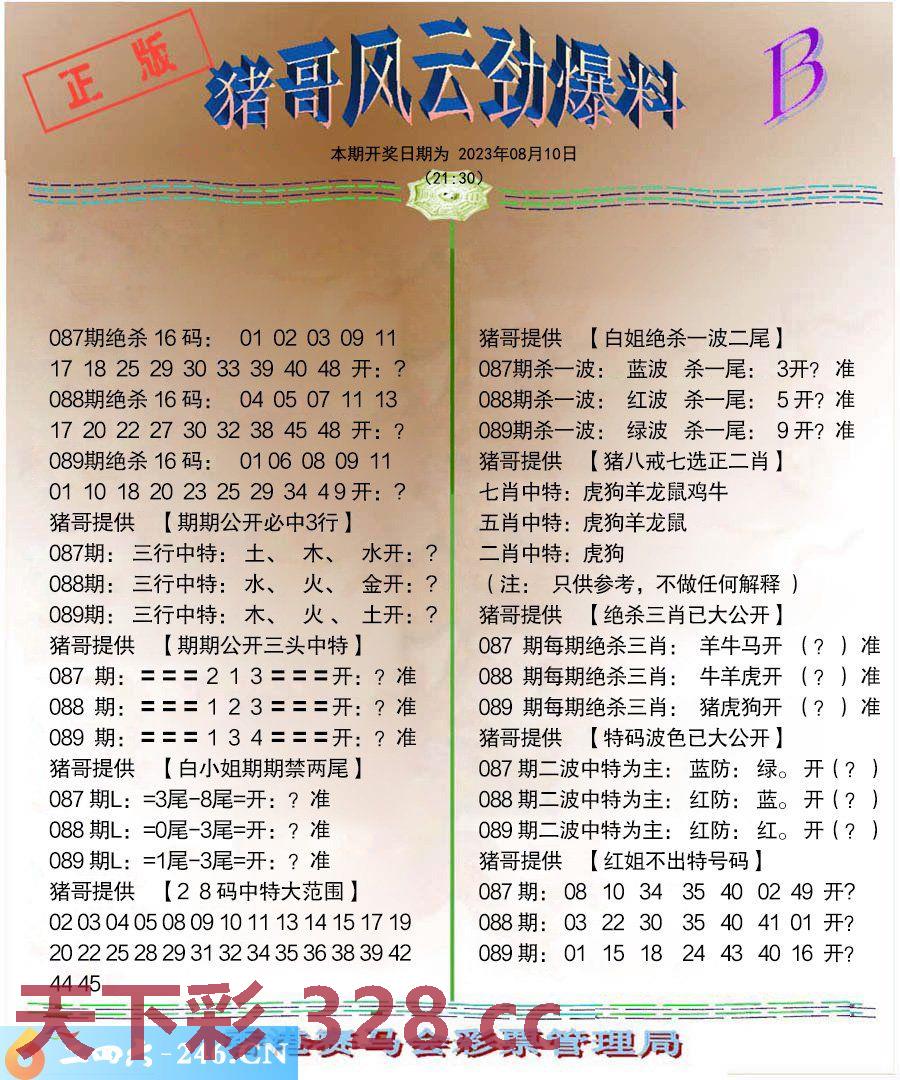 正版
猪哥风云劲爆料
B
本期开奖日期为 2023年08月10日
(21:30)
087期绝杀 16 码： 01 02 03 09 11
17 18 25 29 30 33 39 40 48 开：?
088期绝杀 16 码： 04 05 07 11 13
17 20 22 27 30 32 38 45 48 开：?
089期绝杀 16 码： 01 06 08 09 11
01 10 18 20 23 25 29 34 4 9 开：?
猪哥提供 【期期公开必中3行】
087期： 三行中特： 土、 木、 水开：?
088期： 三行中特： 水、 火、 金开：?
089期： 三行中特： 木、 火 、 土开：?
猪哥提供 【期期公开三头中特】
087 期：〓〓〓 2 1 3 〓〓〓开：? 准
088 期：〓〓〓 1 2 3 〓〓〓开：? 准
089 期：〓〓〓 1 3 4 〓〓〓开：? 准
猪哥提供 【白小姐期期禁两尾】
087 期L：=3尾-8尾=开：? 准
088 期L：=0尾-3尾=开：? 准
089 期L：=1尾-3尾=开：? 准
猪哥提供 【2 8 码中特大范围】
02 03 04 05 08 09 10 11 13 14 15 17 19
20 22 25 28 29 31 32 34 35 36 38 39 42
44 45
猪哥提供 【白姐绝杀一波二尾】
087期杀一波： 蓝波 杀一尾： 3开? 准
088期杀一波： 红波 杀一尾： 5 开? 准
089期杀一波： 绿波 杀一尾： 9 开? 准
猪哥提供 【猪八戒七选正二肖】
七肖中特：虎狗羊龙鼠鸡牛
五肖中特：虎狗羊龙鼠
二肖中特：虎狗
（注： 只供参考，不做任何解释 ）
猪哥提供 【绝杀三肖已大公开】
087 期每期绝杀三肖： 羊牛马开 （? ）准
088 期每期绝杀三肖： 牛羊虎开 （? ）准
089 期每期绝杀三肖： 猪虎狗开 （? ）准
猪哥提供 【特码波色已大公开】
087 期二波中特为主： 蓝防： 绿。 开（? ）
088 期二波中特为主： 红防： 蓝。 开（? ）
089 期二波中特为主： 红防： 红。 开（? ）
猪哥提供 【红姐不出特号码】
087 期： 08 10 34 35 40 02 49 开?
088 期： 03 22 30 35 40 41 01 开?
089 期： 01 15 18 24 43 40 16 开?
天下彩 328.cc
-246.CN
赛马会彩票管理局